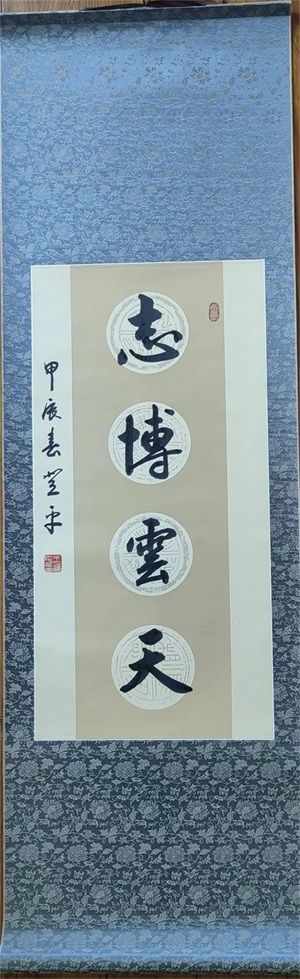 志博雲天
甲辰春